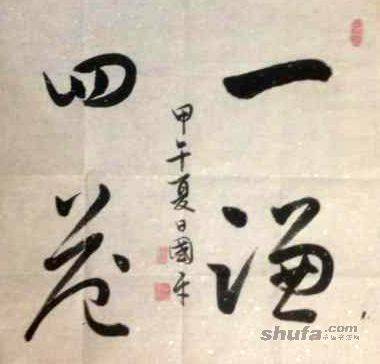 一謙
四益
甲午夏日國平
shufa.com